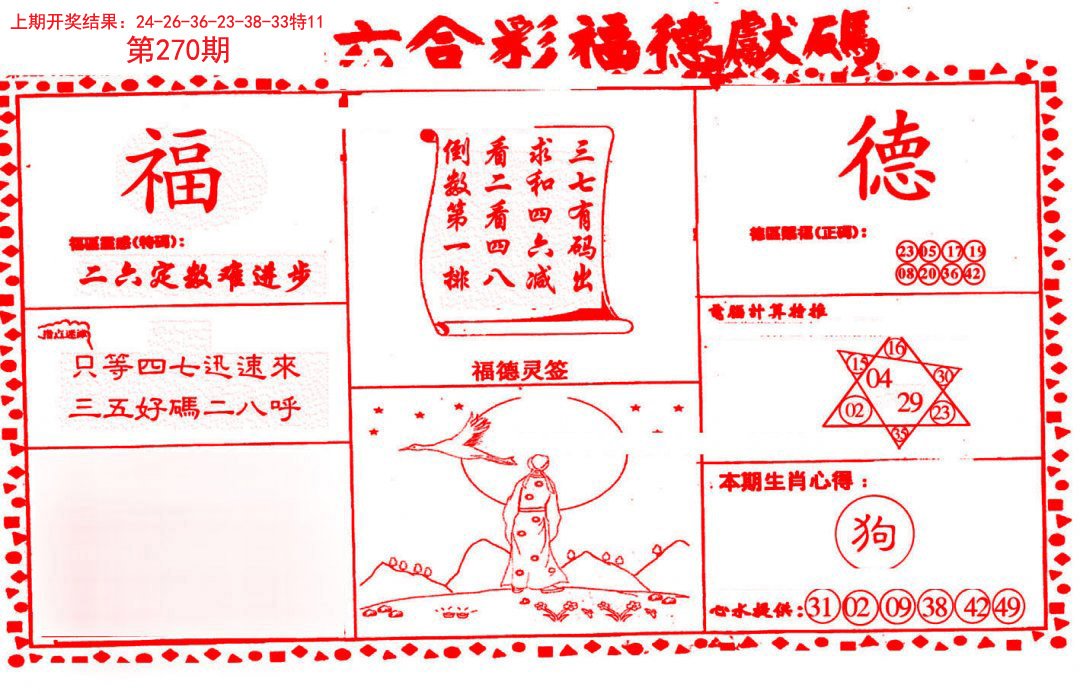 上期开奖结果：24-26-36-23-38-33特11
第270期
六合彩福德獻碼
福
福區靈感(特碼)：
二六定数难进步
指点迷津
只等四七迅速來
三五好碼二八呼
三七有码出
求和四六减
看二看四八
倒数第一排
福德灵签
德
德區賜福(正碼)：
23 05 17 19
08 20 36 42
電腦計算特推
16
15 04 30
02 29 23
35
本期生肖心得：
狗
心水提供：31 02 09 38 42 49